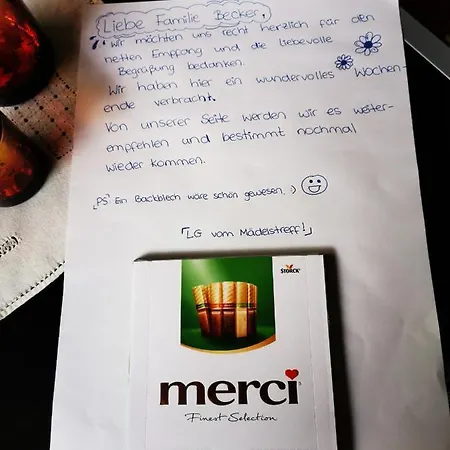 Liebe Familie Becker,
wir möchten uns recht herzlich für den
netten Empfang und die liebevolle
Begrüßung bedanken.
Wir haben hier ein wundervolles Wochen-
ende verbracht.
Von unserer Seite werden wir es weiter-
empfehlen und bestimmt nochmal
wieder kommen.
PS: Ein Backblech wäre schön gewesen. :)
LG vom Mädelstreff!
STORCK
merci
Finest Selection